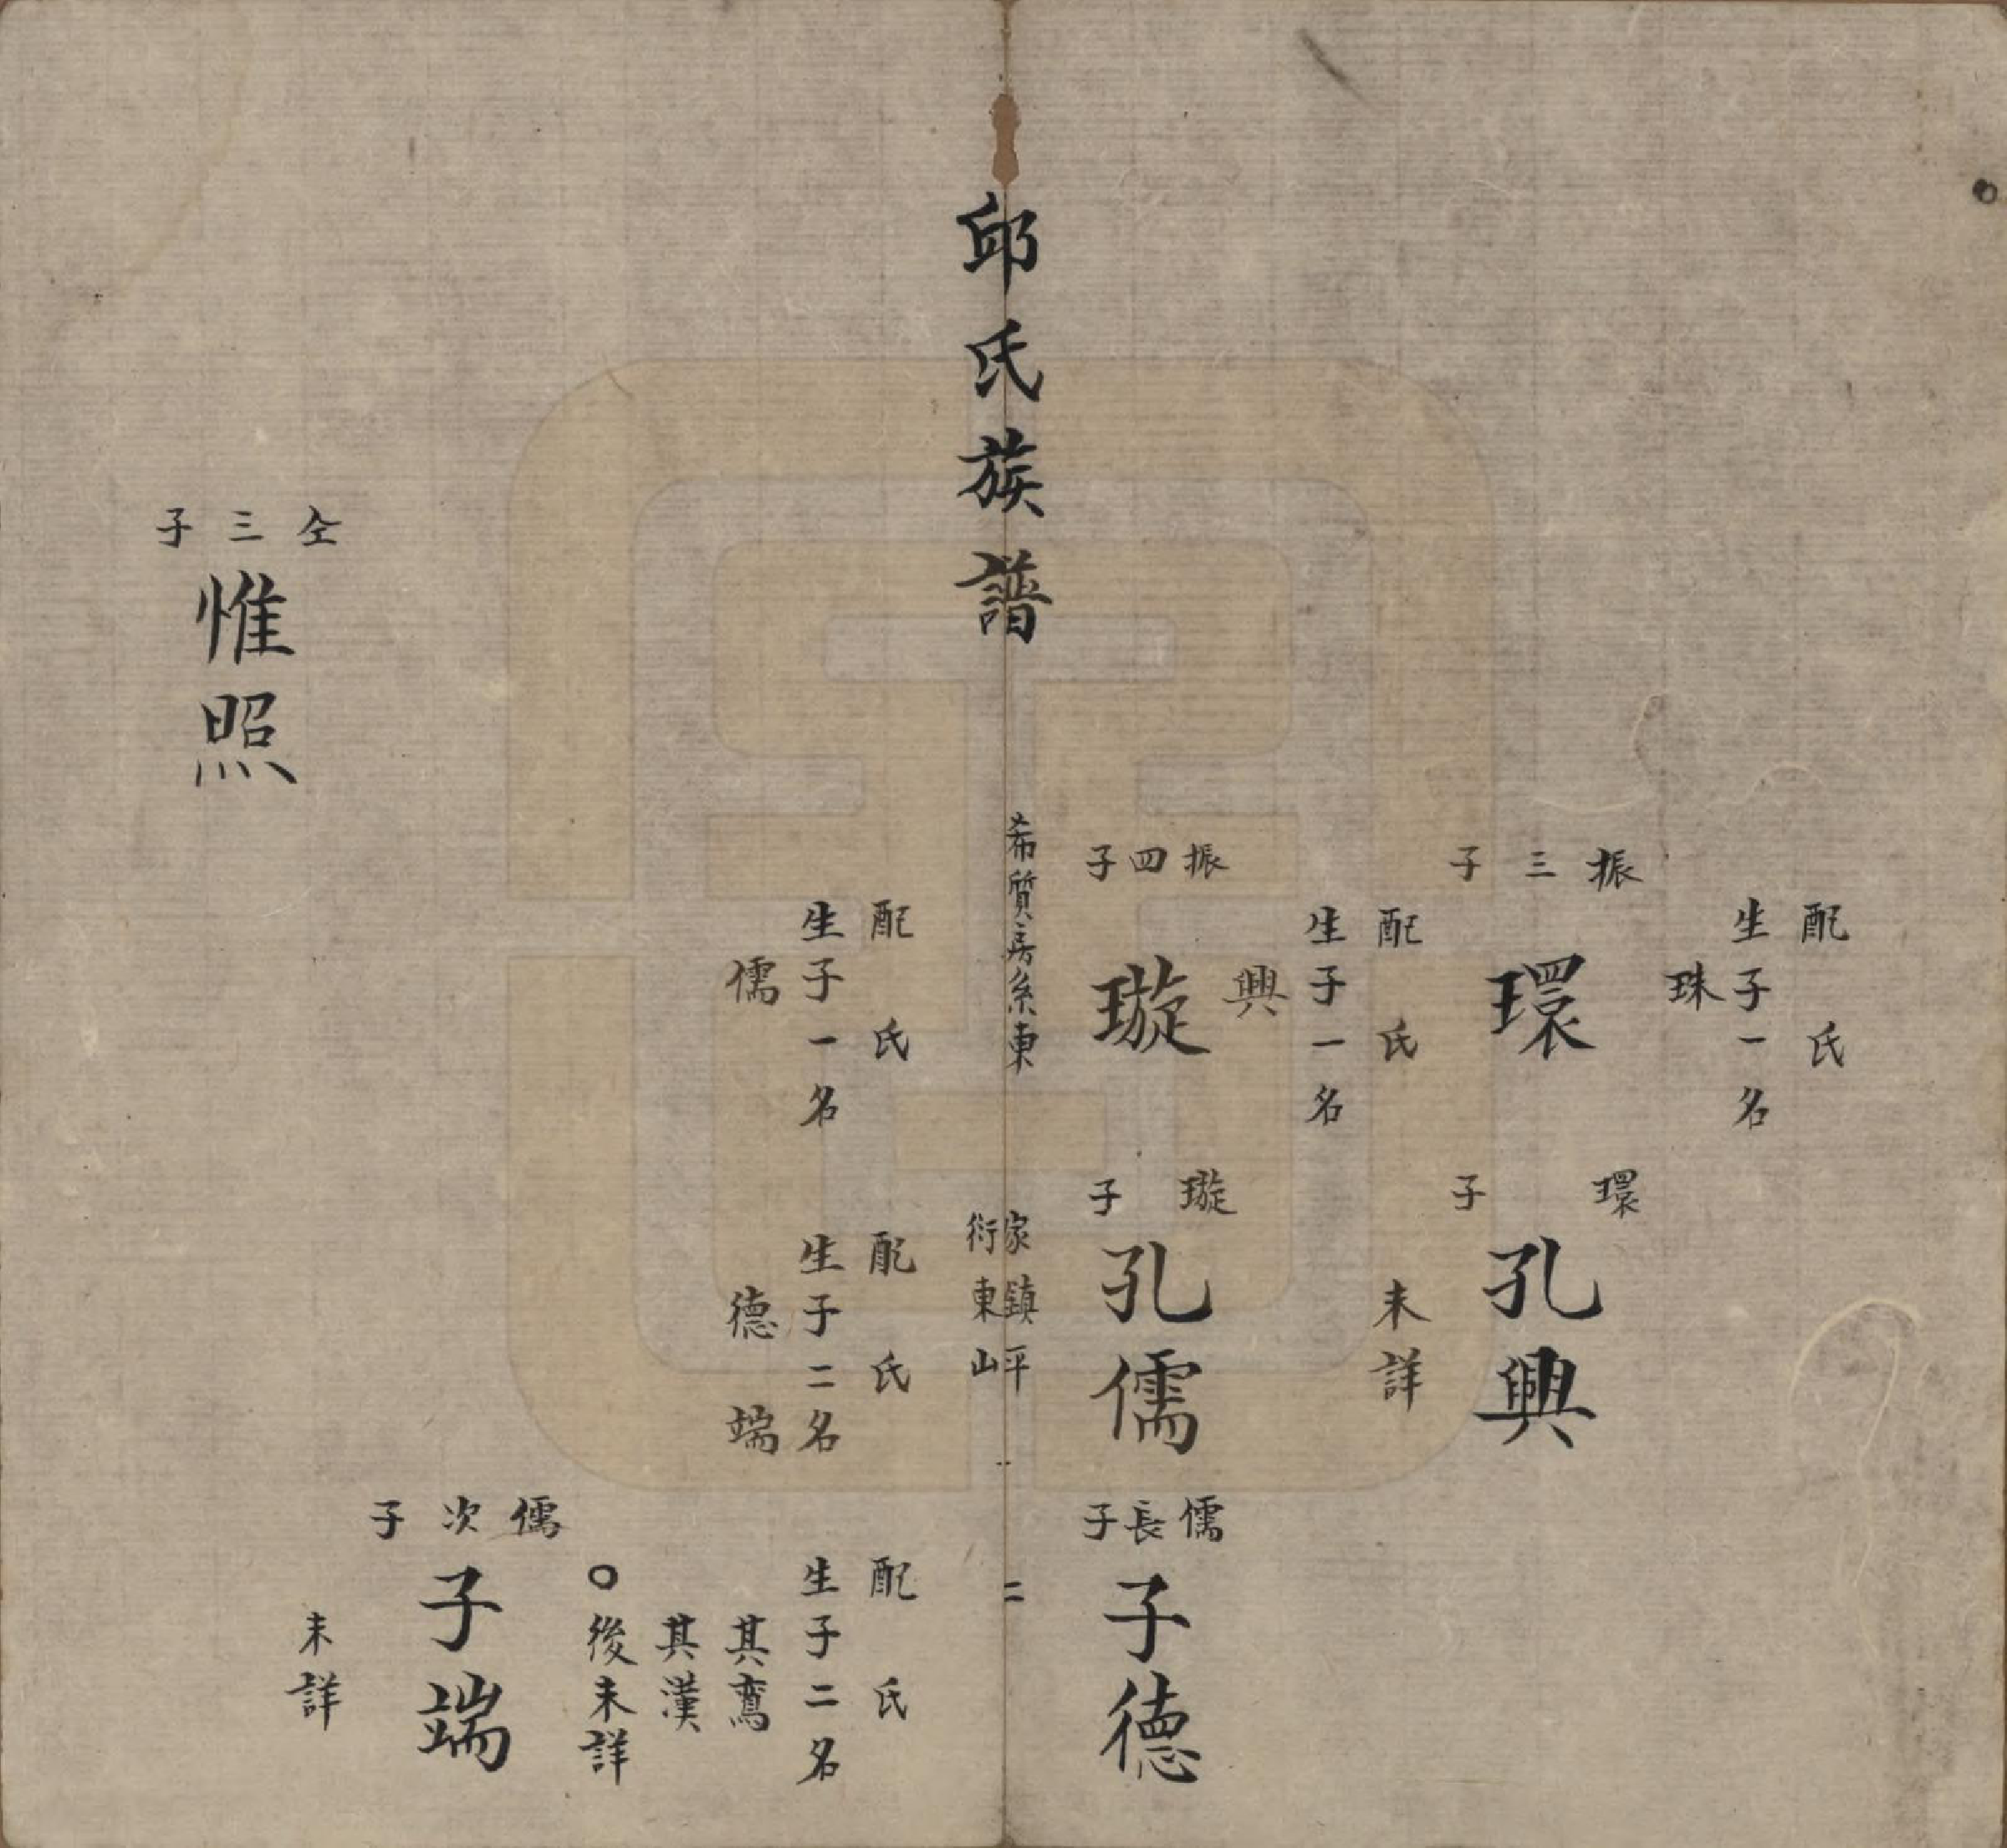 配氏
生子一名
珠
振三子
環
配氏
生子一名
興
環子
孔興
未詳
振四子
璇
配氏
生子一名
儒
璇子
孔儒
配氏
生子二名
德端
儒長子
子德
配氏
生子二名
其鸞
其漢
〇後未詳
儒次子
子端
未詳
邱氏族譜
希質房系東
家鎮平
衍東山
二
仝三子
惟照